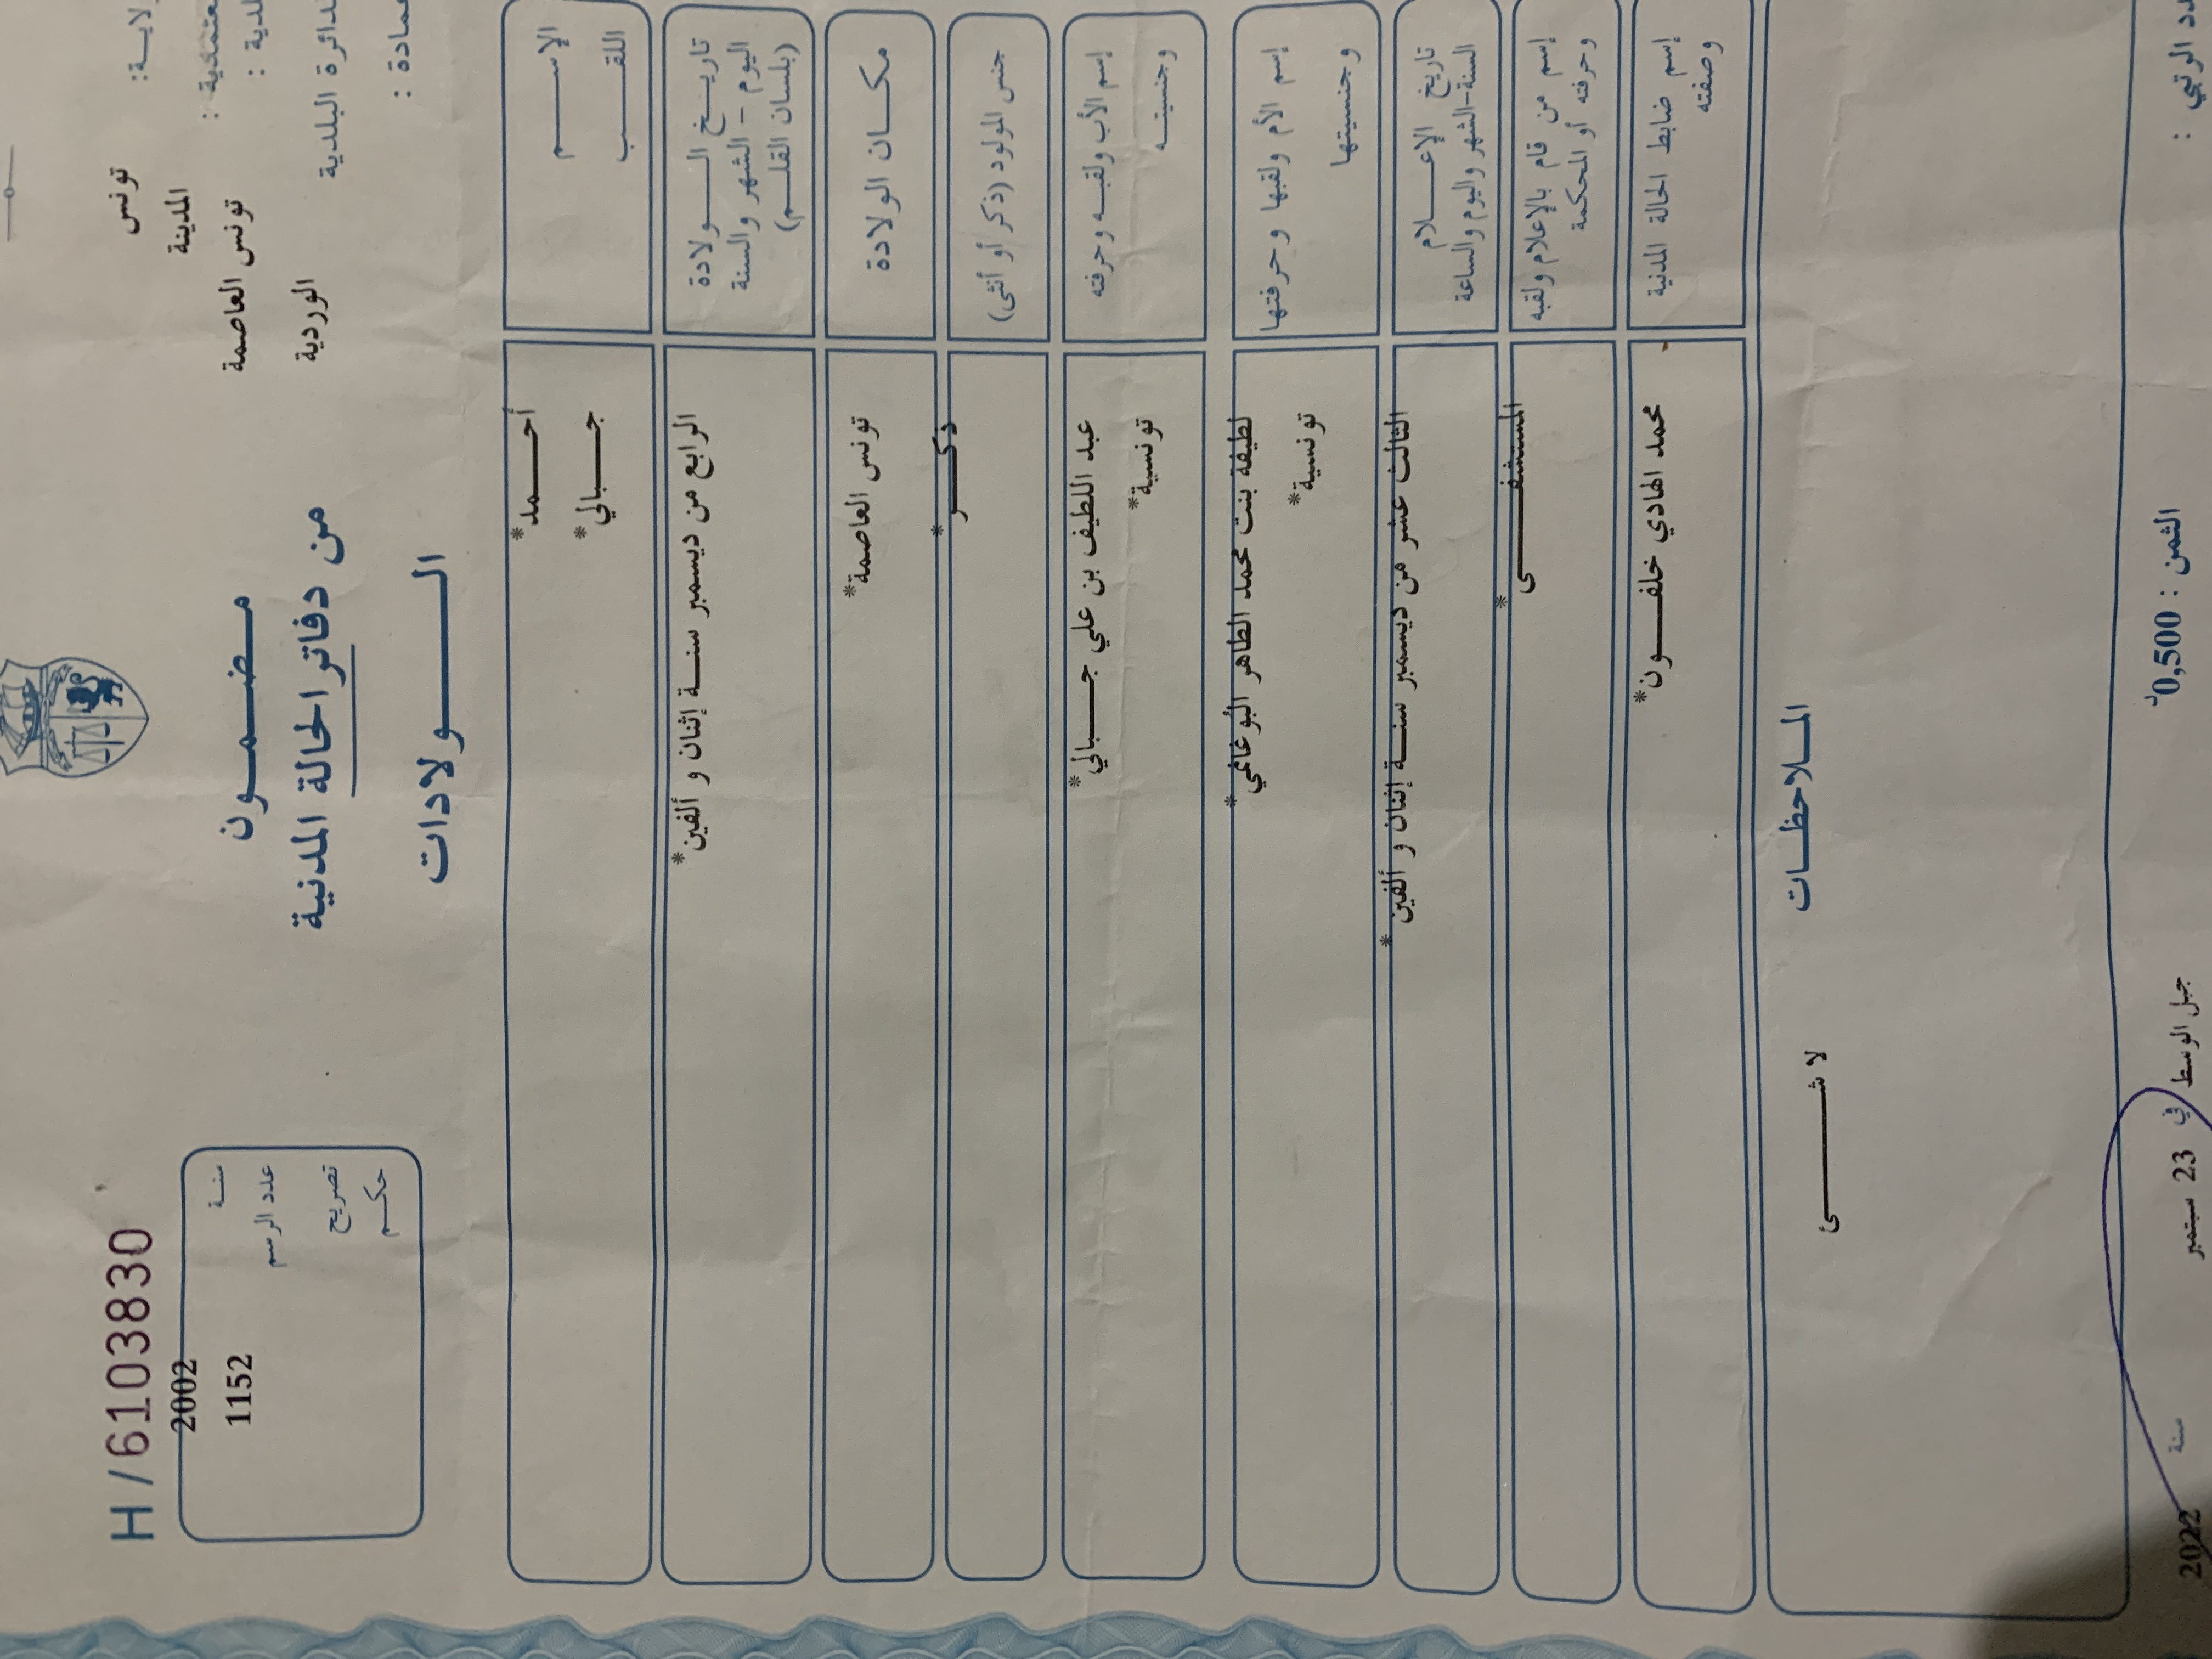 H/6103830
تونس
المدينة
تونس العاصمة
الدائرة البلدية
الوردية
سنة 2002
عدد الرسم 1152
تصريح
حكم
مضمون
من دفاتر الحالة المدنية
الولادات
الإسم أحمد*
اللقب جبالي*
تاريخ الولادة
اليوم - الشهر والسنة
(بلسان القلم)
الرابع من ديسمبر سنة إثنان و ألفين*
مكان الولادة تونس العاصمة*
جنس المولود (ذكر أو أنثى) ذكر*
إسم الأب ولقبه وحرفته عبد اللطيف بن علي جبالي*
وجنسيته تونسية*
إسم الأم ولقبها وحرفتها لطيفة بنت محمد الطاهر البوغانمي*
وجنسيتها تونسية*
تاريخ الإعلام
السنة-الشهر واليوم والساعة
الثالث عشر من ديسمبر سنة إثنان و ألفين*
إسم من قام بالإعلام ولقبه
وحرفته أو المحكمة
المستشفى*
إسم ضابط الحالة المدنية
وصفته
محمد الهادي خلفون*
الملاحظات
لا شئ
الثمن : 0,500د
جبل الوسط في 23 سبتمبر سنة 2022